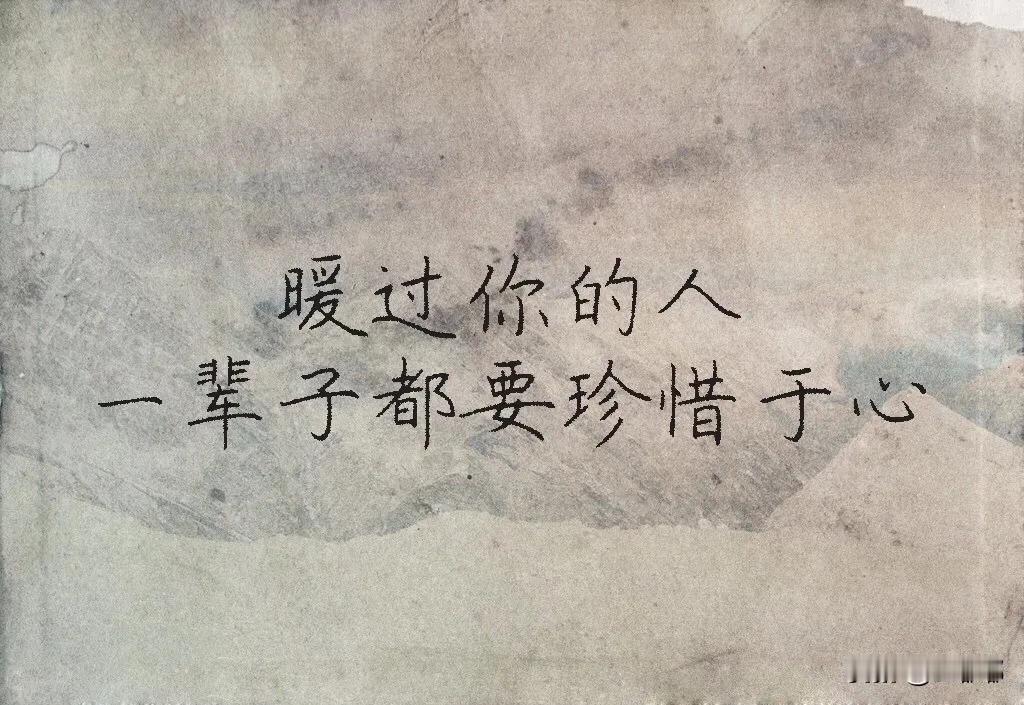 暖过你的人
一辈子都要珍惜于心